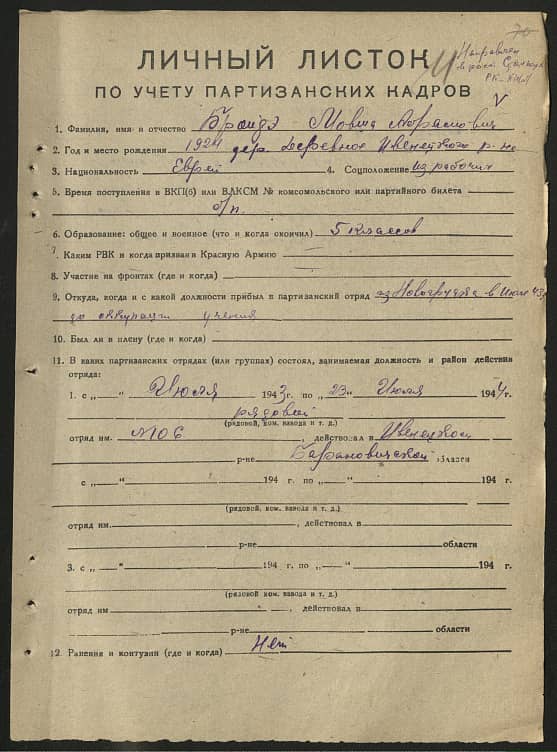 70
Направлен
РК
ЛИЧНЫЙ ЛИСТОК
ПО УЧЕТУ ПАРТИЗАНСКИХ КАДРОВ
1. Фамилия, имя и отчество Бройдэ Мовша Абрамович
2. Год и место рождения 1924 дер. Деревное Ивенецкого р-на
3. Национальность Еврей 4. Соцположение из рабочих
5. Время поступления в ВКП(б) или ВЛКСМ № комсомольского или партийного билета
б/п.
6. Образование: общее и военное (что и когда окончил) 5 классов
7. Каким РВК и когда призван в Красную Армию
8. Участие на фронтах (где и когда)
9. Откуда, когда и с какой должности прибыл в партизанский отряд из Новогрудка в Июле 43
до оккупации
10. Был ли в плену (где и когда)
11. В каких партизанских отрядах (или группах) состоял, занимаемая должность и район действия
отряда:
1. с „ “ Июля 1943 г. по „23“ Июля 1944 г.
рядовой
(рядовой, ком. взвода и т. д.)
отряд им. №106, действовал в Ивенецком
р-не Барановичской области
с „ “ 194 г. по „ “ 194 г.
(рядовой, ком. взвода и т. д.)
отряд им. , действовал в
р-не области
3. с „ “ 194 г. по „ “ 194 г.
(рядовой ком. взвода и т. д.)
отряд им , действовал в
р-не области
12. Ранения и контузии (где и когда) Нет